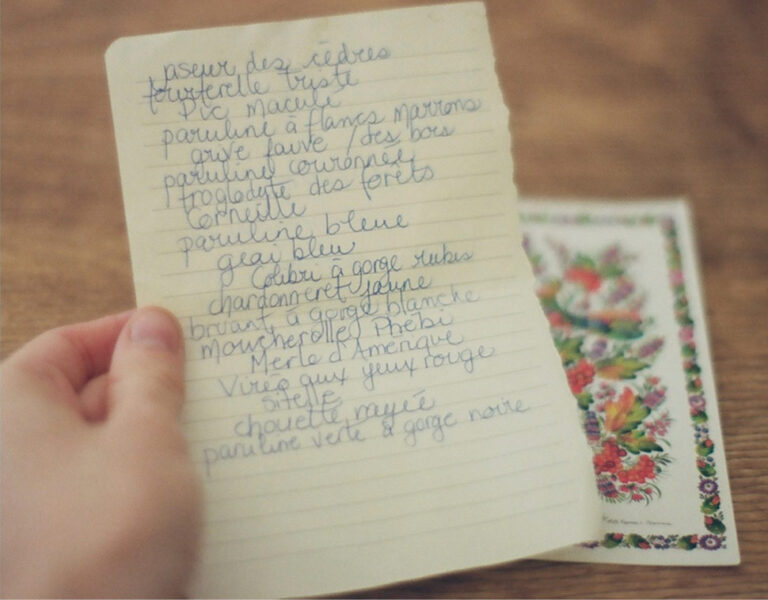 jaseur des cèdres
tourterelle triste
Pic maculé
paruline à flancs marrons
grive fauve / des bois
paruline couronnée
troglodyte des forêts
Corneille
paruline bleue
geai bleu
Colibri à gorge rubis
chardonneret jaune
bruant à gorge blanche
Moucherolle Phébi
Merle d'Amérique
Viréo aux yeux rouge
Sitelle
chouette rayée
paruline verte à gorge noire